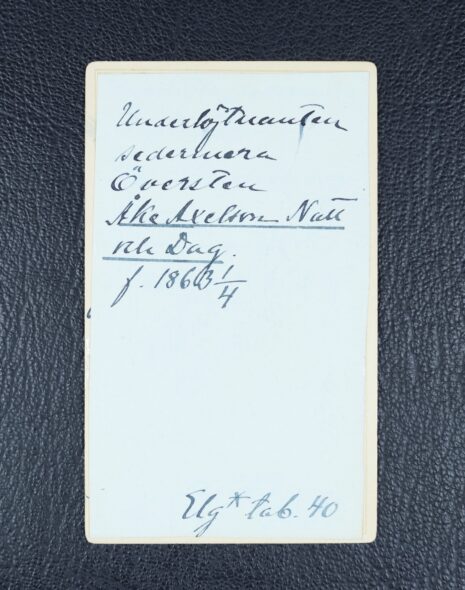 Underlöjtnanten
sedermera
Översten
Åke Axelson Natt
och Dag.
f. 1863 1/4
Elg* tab. 40